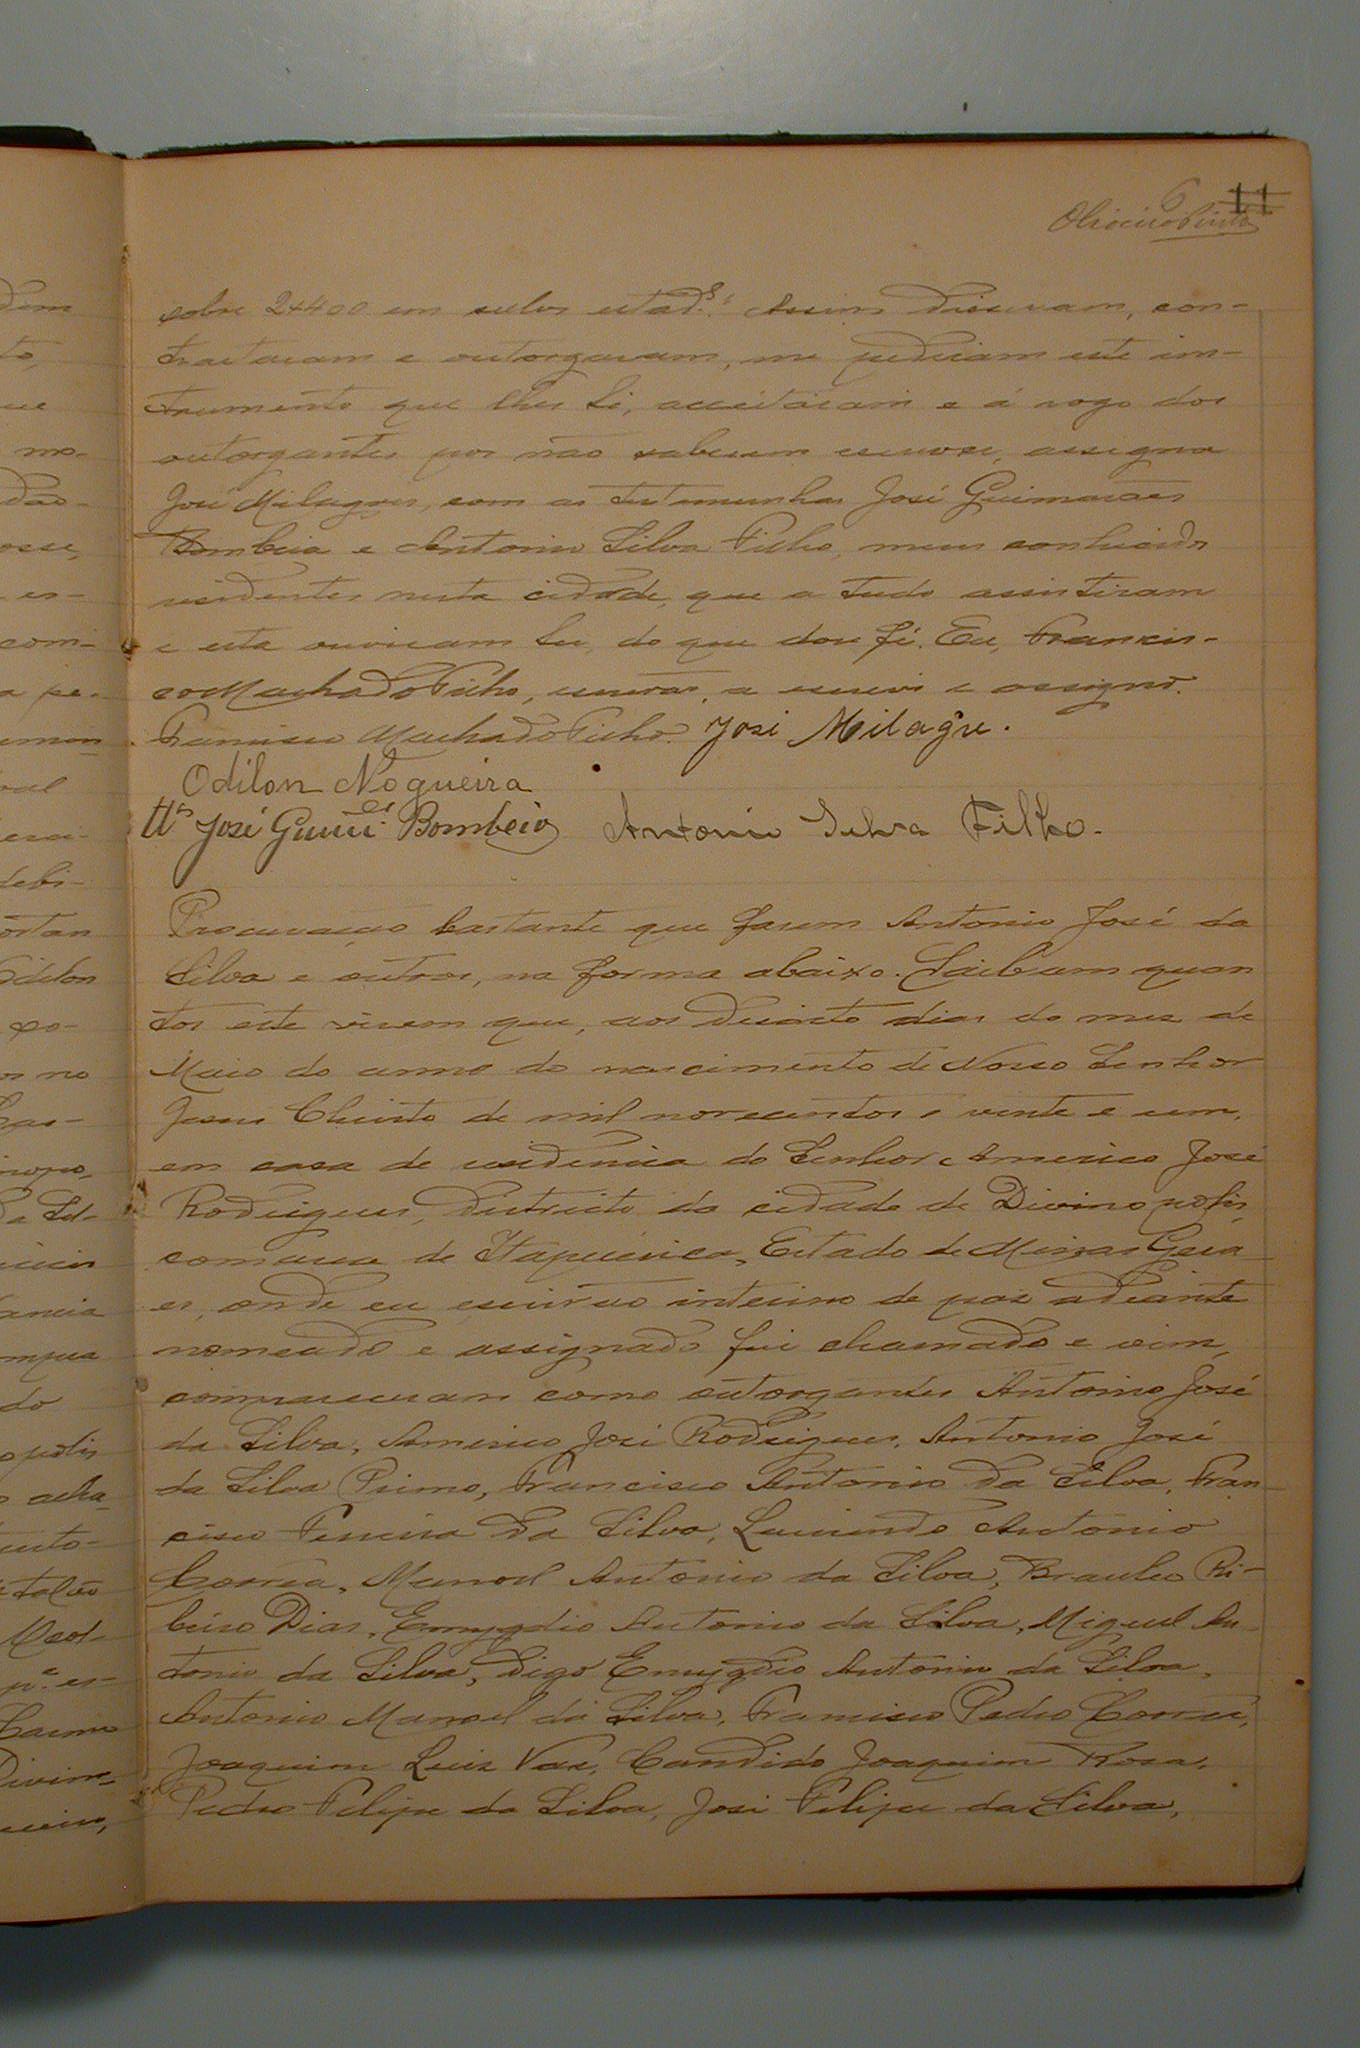 6 11
Oliveira Pinto
sobre 2$400 em sellos estad.s. Assim disseram, con-
tractaram e outorgaram, me pediram este ins-
trumento que lhes li, acceitaram e á rogo dos
outorgantes por não saberem escrever, assigna
José Milagres, com as testemunhas José Guimarães
Bombeia e Antonio Silva Filho, meus conhecidos
residentes nesta cidade, que a tudo assistiram
e esta ouviram ler, do que dou fé. Eu, Francis-
co Machado Filho, escrivão, a escrevi e assigno.
Francisco Machado Filho. José Milagre.
Odilon Nogueira
ttas José Guim.es Bombeia Antonio Silva Filho.
Procuração bastante que fazem Antonio José da
Silva e outros, na forma abaixo. Saibam quan
tos este virem que, aos dezoito dias do mez de
Maio do anno do nascimento de Nosso Senhor
Jesus Christo de mil novecentos e vinte e um,
em casa de residencia do Senhor Americo José
Rodrigues, districto da cidade de Divinopolis,
comarca de Itapecerica, Estado de Minas Gera
es, onde eu escrivão interino de paz adeante
nomeado e assignado fui chamado e vim,
compareceram como outorgantes Antonio José
da Silva, Americo José Rodrigues, Antonio José
da Silva Primo, Francisco Antonio da Silva, Fran
cisco Ferreira da Silva, Lucindo Antonio
Correa, Manoel Antonio da Silva, Braulio Ri-
beiro Dias, Emygdio Antonio da Silva, Miguel An-
tonio da Silva, digo Emygdio Antonio da Silva,
Antonio Manoel da Silva, Francisco Pedro Correa,
Joaquim Luiz Vaz, Candido Joaquim Rosa,
Pedro Felipe da Silva, José Felipe da Silva,